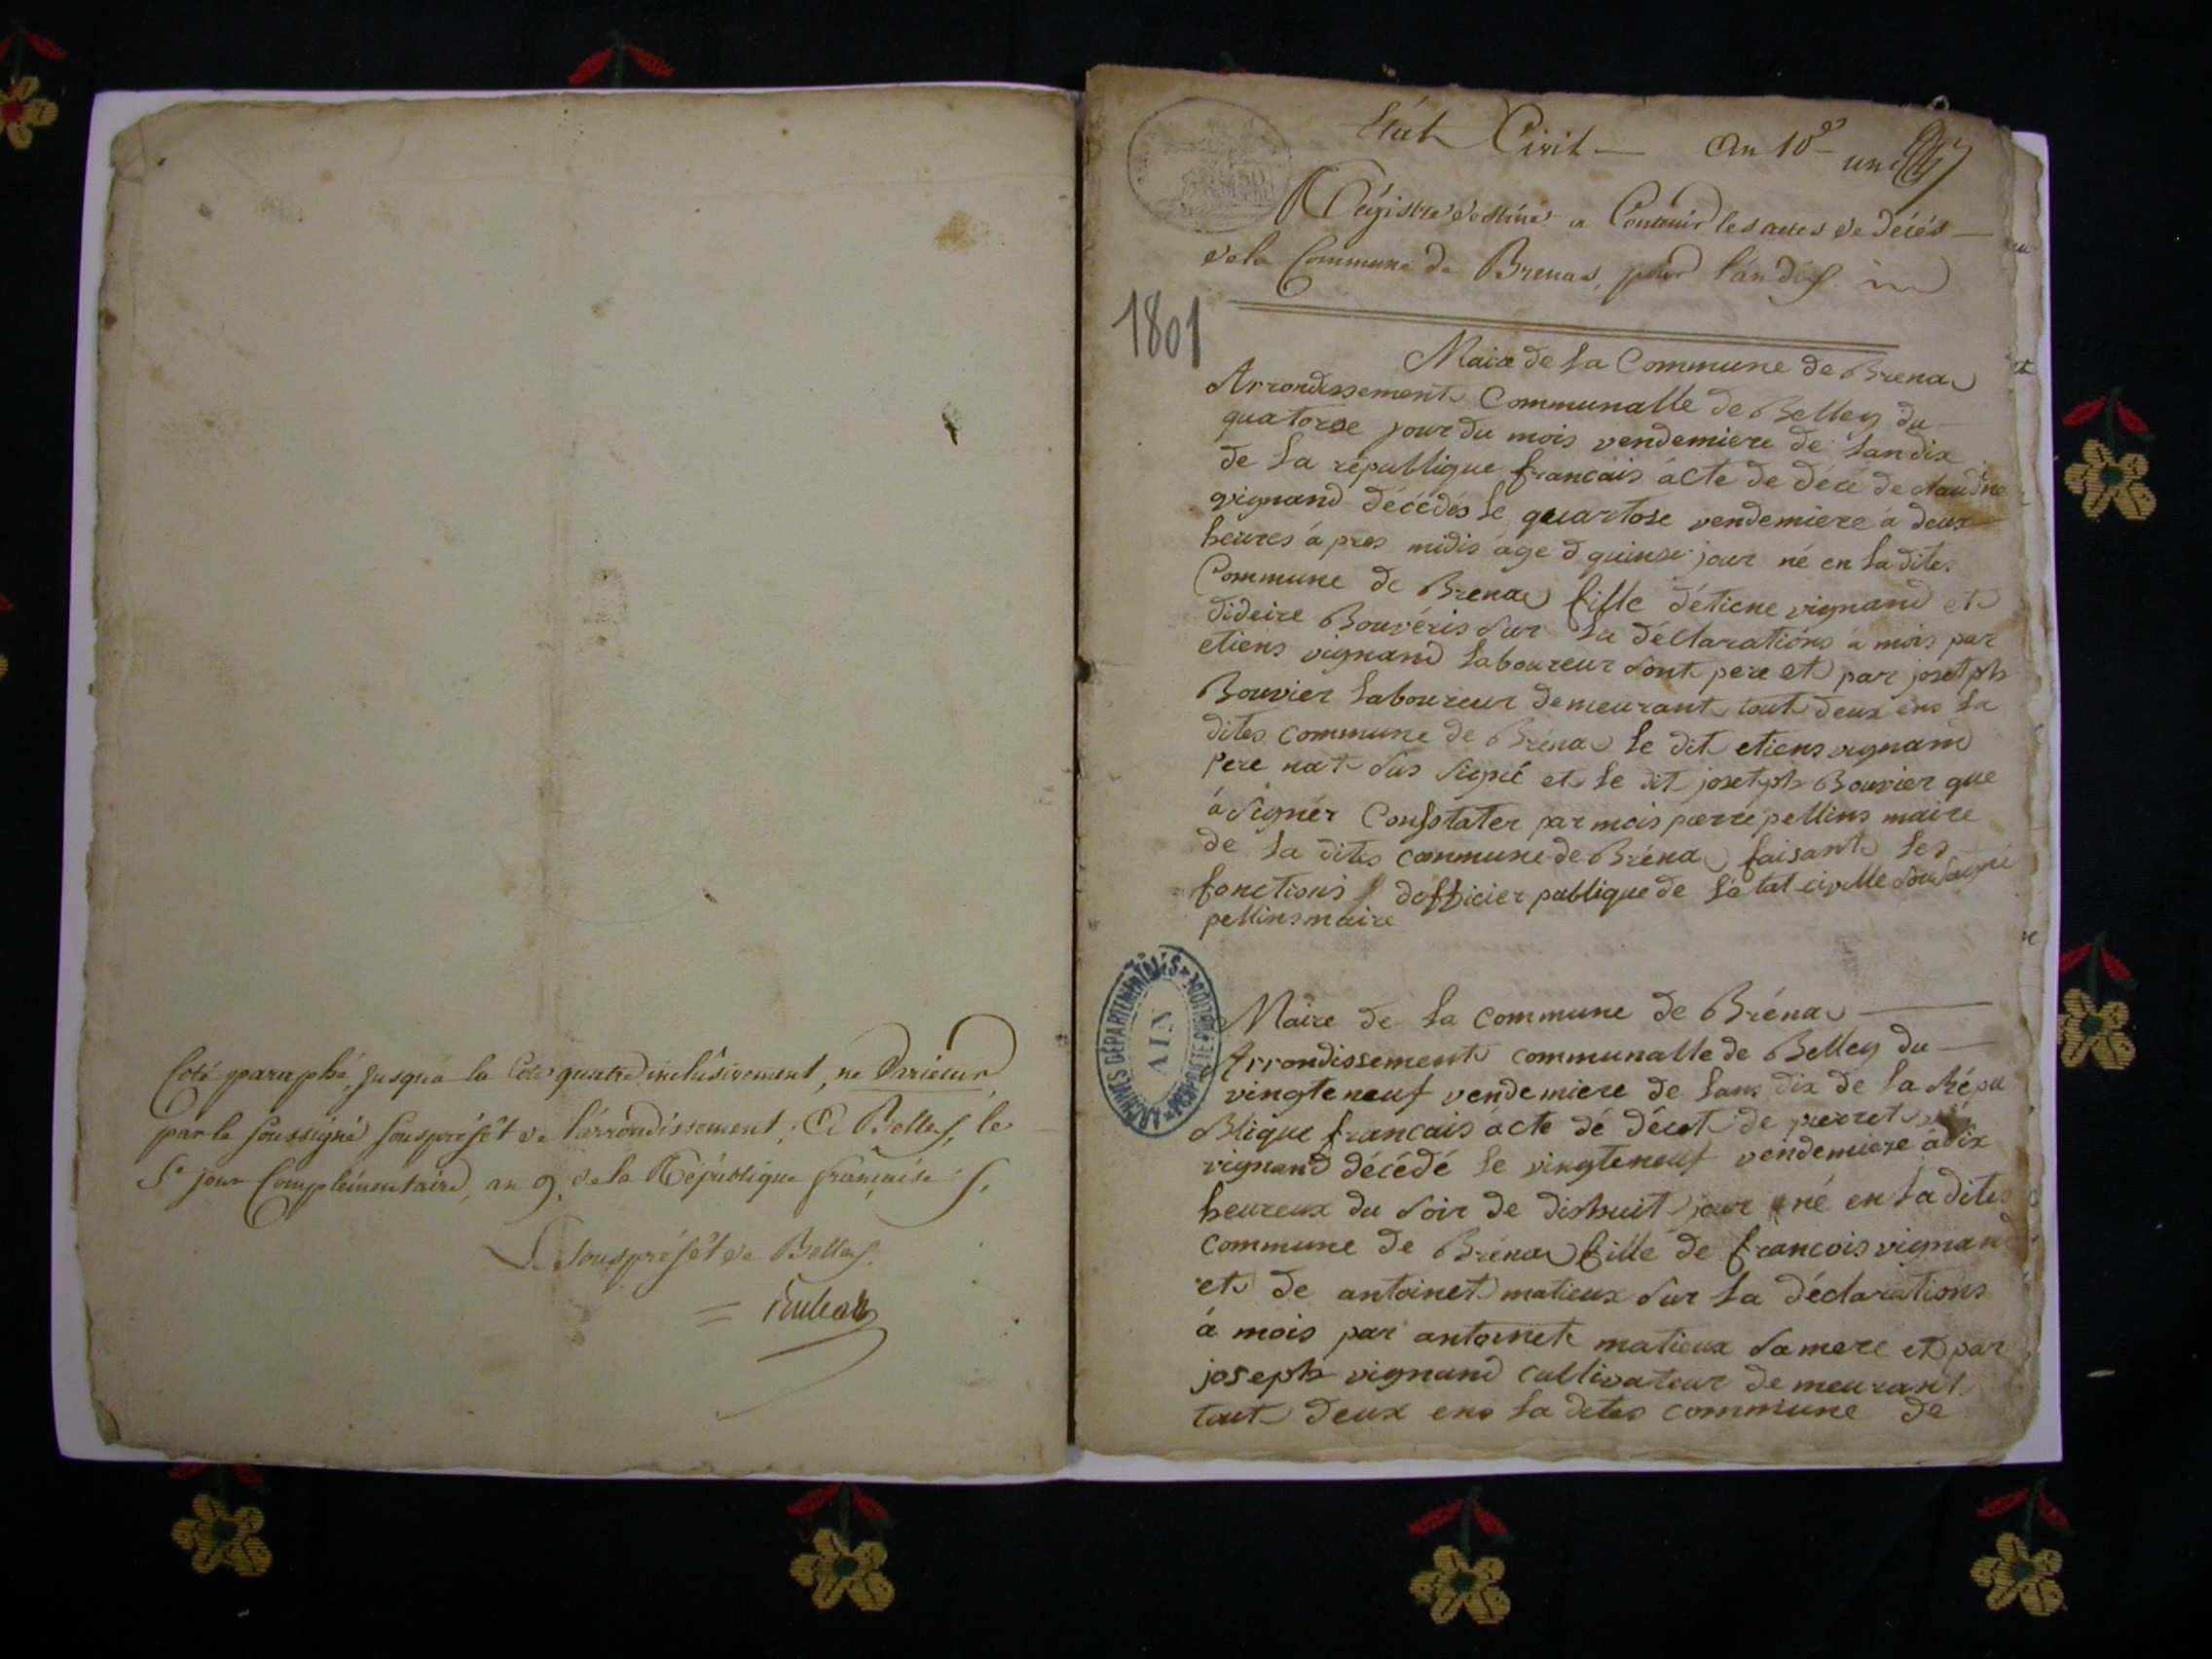 Coté paraphé, jusqua la Cote quatre inclusivement, ne Varietur
par le soussigné souspréfet de l'arrondissement, A Belley, le
5e jour Complémentaire, an 9, de la République française
Le souspréfet de Belley
État Civil — An 10e un
Régistre destiné a Contenir les actes de décés
de la Commune de Brenas, pour l'an dix
1801
Maire de la Commune de Brena
Arrondissement Communalle de Belley du
quatorze jour du mois vendemiere de lan dix
de la république francais acte de décé de claudine
vignand décédés le quartose vendemiere a deux
heures á pres midis age d quinse jour né en la dites
Commune de Brena fille détiene vignand et
dideire Bouvéris sur la déclarations a mois par
etiens vignand laboureur sont pere et par josetph
Bouvier laboureur demeurant tout deux ens la
dites commune de Bréna le dit etiens vignand
pere nat sus signé et le dit josetph Bouvier que
á signér Consstater par mois pierre pellins maire
de la dites commune de Bréna faisant les
fonctions dofficier publique de lé tat civille sousigné
pellins maire
ARCHIVES DÉPARTEMENTALES
AIN
Maire de la commune de Bréna
Arrondissement communalle de Belley du
vingteneuf vendemiere de lans dix de la Répu
Blique francais ácte dé décet de pierret
vignand décédé le vingteneuf vendemiere á dix
heureux du soir de dishuit jour né en la dites
commune de Bréna fille de francois vignand
et de antoinet matieux sur la déclarations
á mois par antoinet matieux sa mere et par
joseph vignand cultivateur demeurant
tout deux ens la dites commune de